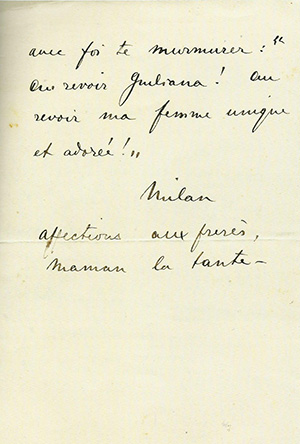 avec foi te murmurer: "
Au revoir Giuliana! Au
revoir ma femme unique
et adorée!"
Milan
affections aux frères,
maman la tante-